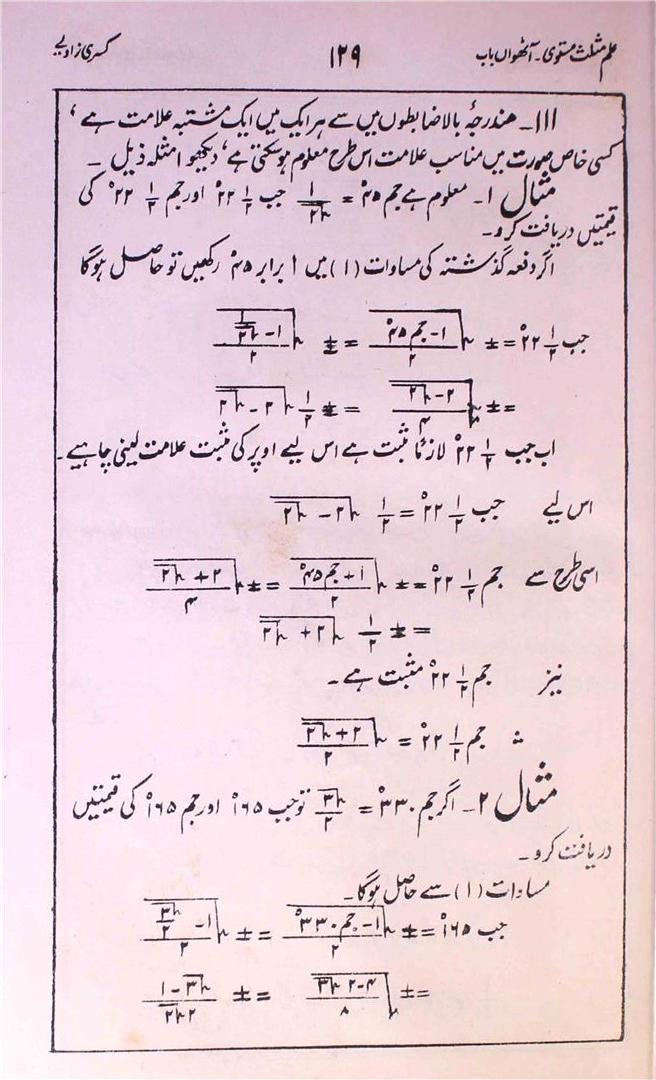 علم مثلث مستوی۔ آٹھواں باب ۱۲۹ کسری زاویے
۱۱۱۔ مندرجۂ بالا ضابطوں میں سے ہر ایک میں ایک مشتبہ علامت ہے ،
کسی خاص صورت میں مناسب علامت اس طرح معلوم ہو سکتی ہے ، دیکھو امثلہ ذیل ۔
مثال ۱۔ معلوم ہے جم ۴۵° = ۱/√۲ جب ۲۲ ۱/۲° اور جم ۲۲ ۱/۲° کی
قیمتیں دریافت کرو۔
اگر دفعہ گذشتہ کی مساوات (۱) میں ا برابر ۴۵° رکھیں تو حاصل ہوگا
جب ۲۲ ۱/۲° = ± √((۱ - جم ۴۵°)/۲) = ± √((۱ - ۱/√۲)/۲)
= ± √((۲ - √۲)/۴) = ± ۱/۲ √(۲ - √۲)
اب جب ۲۲ ۱/۲° لازماً مثبت ہے اس لیے اوپر کی مثبت علامت لینی چاہیے۔
اس لیے جب ۲۲ ۱/۲° = ۱/۲ √(۲ - √۲)
اسی طرح سے جم ۲۲ ۱/۲° = ± √((۱ + جم ۴۵°)/۲) = ± √((۲ + √۲)/۴)
= ± ۱/۲ √(۲ + √۲)
نیز جم ۲۲ ۱/۲° مثبت ہے ۔
∴ جم ۲۲ ۱/۲° = √(۲ + √۲)/۲
مثال ۲۔ اگر جم ۳۳۰° = √۳/۲ تو جب ۱۶۵° اور جم ۱۶۵° کی قیمتیں
دریافت کرو ۔
مساوات (۱) سے حاصل ہوگا۔
جب ۱۶۵° = ± √((۱ - جم ۳۳۰°)/۲) = ± √((۱ - √۳/۲)/۲)
= ± √((۴ - ۲√۳)/۸) = ± (√۳ - ۱)/(۲√۲)